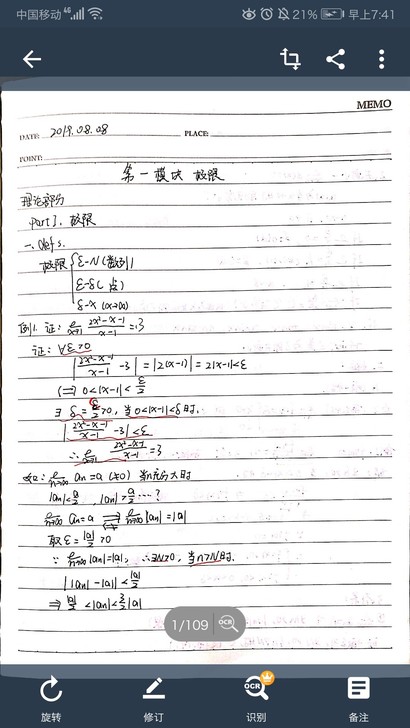 中国移动 4G 21% 早上7:41
MEMO
DATE: 2019.08.08 PLACE:
POINT:
第一模块 极限
理论部分
Part I. 极限
一、defs.
极限 { ε-N (数列)
ε-δ ( 点)
ε-X (x→∞)
例1. 证: lim x→1 (2x²-x-1)/(x-1) = 3
证: ∀ε>0
|(2x²-x-1)/(x-1) - 3| = |2(x-1)| = 2|x-1| < ε
⟺ 0<|x-1|<ε/2
∃ δ=ε/2>0, 当0<|x-1|<δ时,
|(2x²-x-1)/(x-1) - 3|<ε
∴ lim x→1 (2x²-x-1)/(x-1) = 3
lim n→∞ an=a (≠0) 当n充分大时
|an|<a/2 , |an|>a/2 …?
lim n→∞ an=a ⟹ lim n→∞ |an|=|a|
取ε=|a|/2>0
∵ lim n→∞ |an|=|a|, ∴∃N>0, 当n>N时,
||an|-|a||<|a|/2
⇒ |a|/2<|an|<3/2|a|
1/109 OCR
旋转 修订 OCR 识别 备注